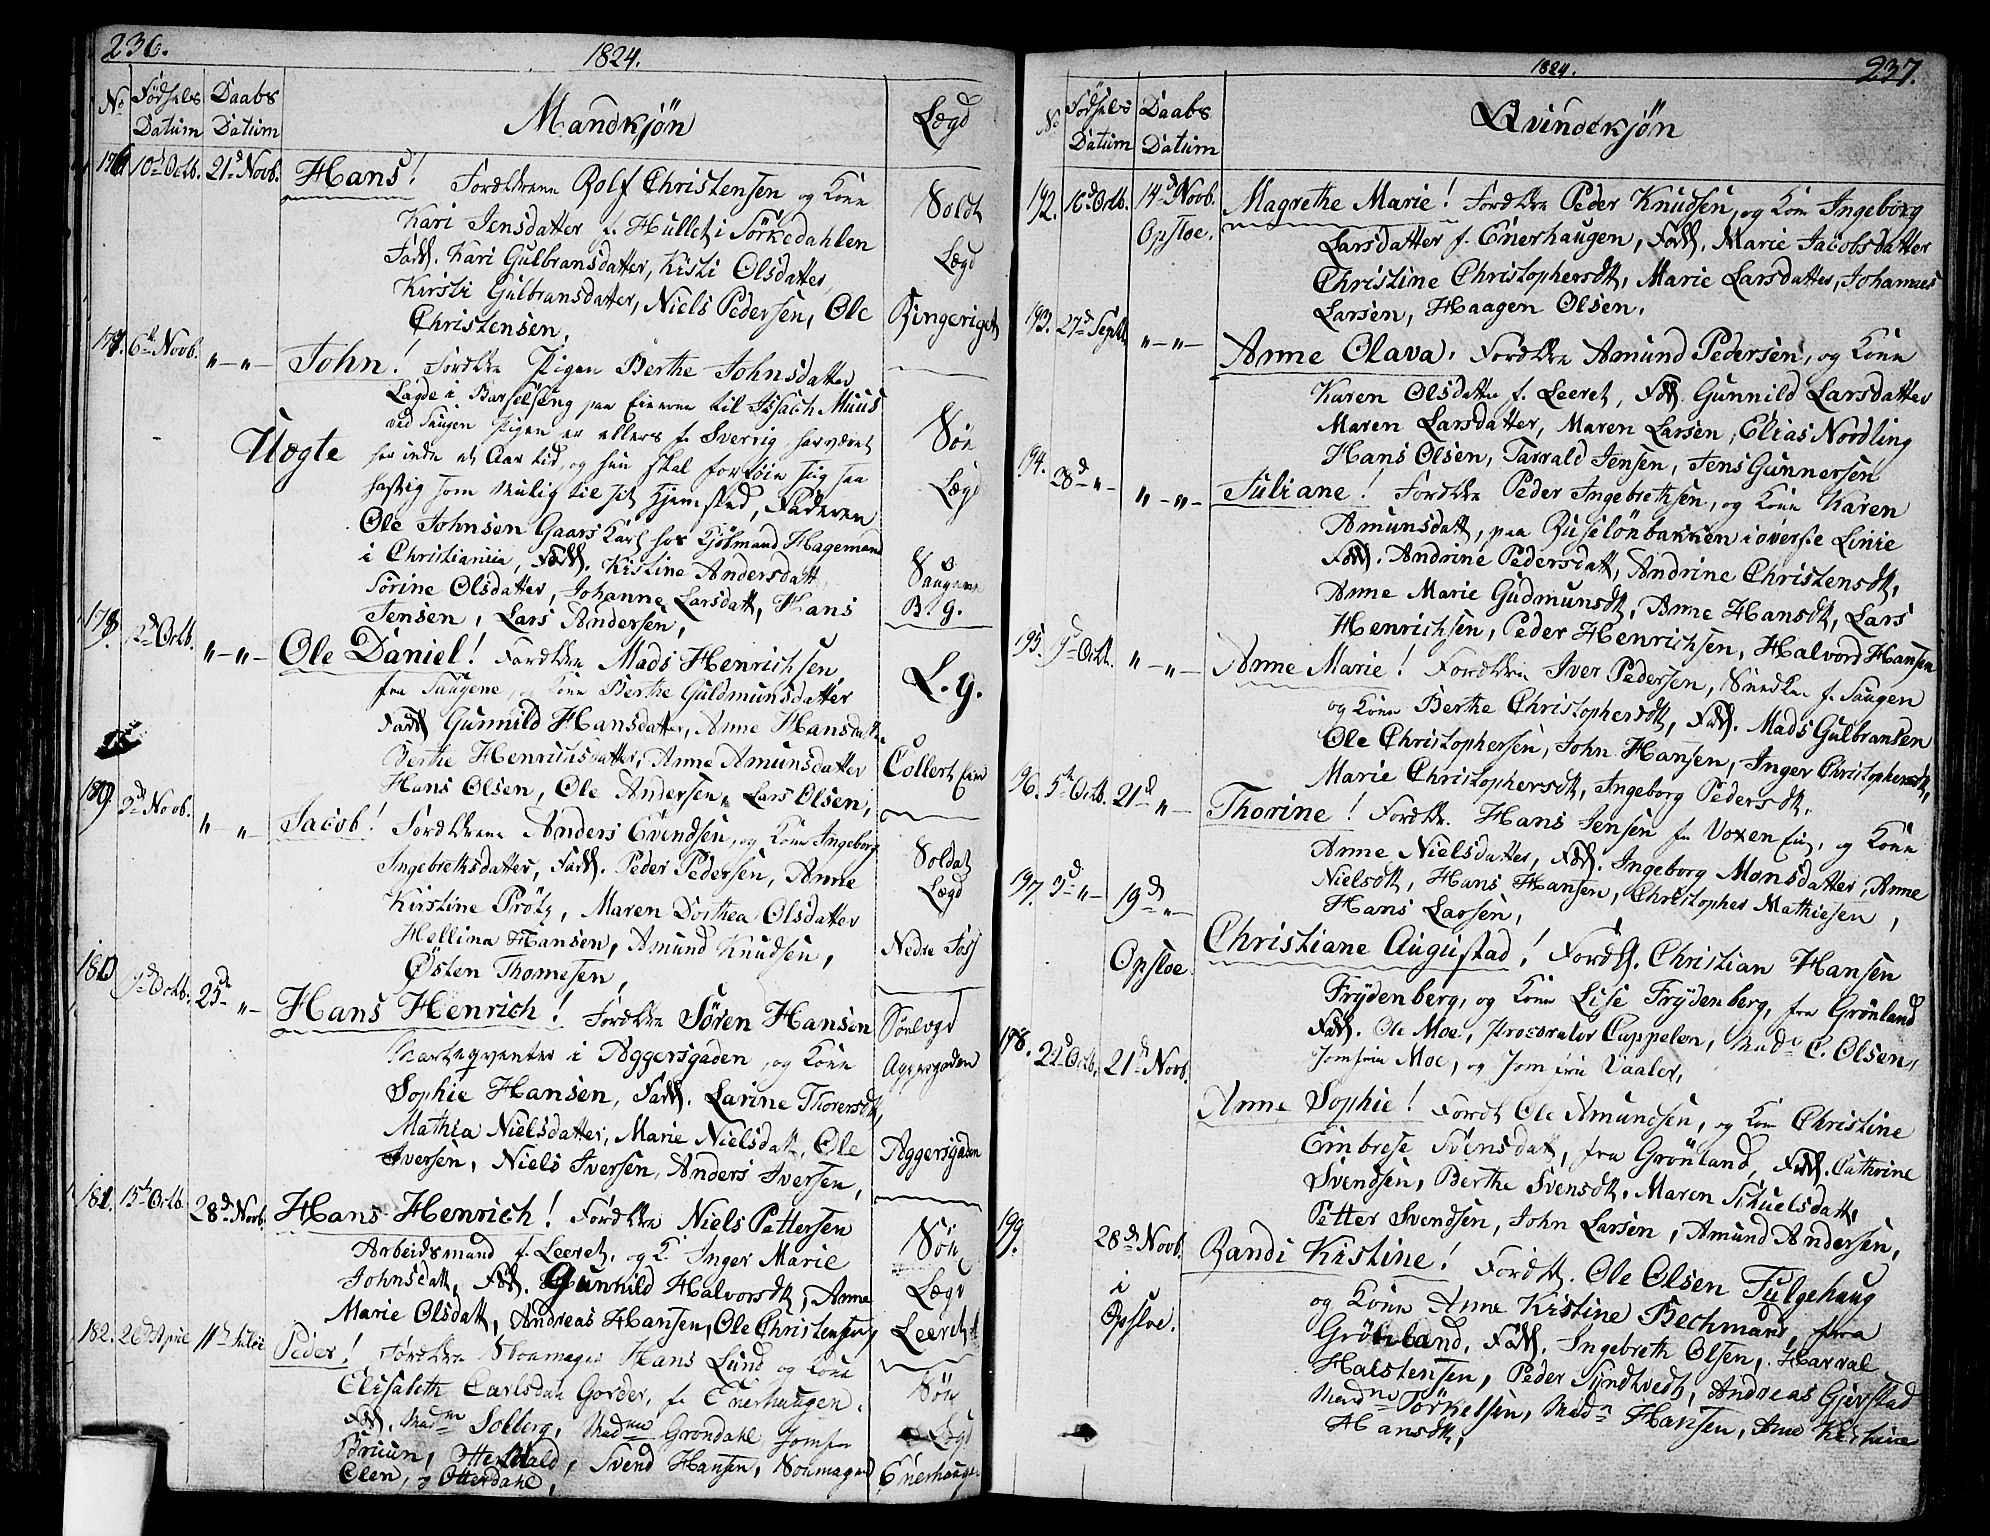 236.
1824.
No
Fødsels Datum
Daabs Datum
Mandkjön
Lægd
176 10d Octb. 21d Novb. Hans! Forældrene Rolf Christensen og Kone
Kari Jensdatter f. Hullet i Sörkedahlen
Fadd. Kari Gulbransdatter, Kisti Olsdatter,
Kirsti Gulbransdatter, Niels Pedersen, Ole
Christensen,
Soldt
Lægd
Ringeriget
177. 6te Novb. "-"- John! Forældre Pigen Berthe Johnsdatter
Lagde i Barselseng paa Eierne til Issach Muus
ved Saugen Pigen er ellers f. Sverrig, har været
her inde et Aar tid, og hun skal forföie sig saa
hastig som mulig til sit Hjemsted, Faderen
Ole Johnsen Gaars Karl hos Kjöbmand Hagemand
i Christiania, Fadd. Kistine Andersdatt
Sörine Olsdatter, Johanne Larsdatt, Hans
Jensen, Lars Andersen,
Uægte
Sön
Lægd
Saugene
B. g.
178. 2d Octb. "-"- Ole Daniel! Forældre Mads Henrichsen
fra Saugene, og Kone Berthe Guldmunsdatter
Fadd Gunnild Hansdatter, Anne Hansdatt.
Berthe Henrichsdatter, Anne Amunsdatter
Hans Olsen, Ole Andersen, Lars Olsen,
L. g.
Collert
179. 3d Novb. " "- Jacob! Forældrene Anders Evendsen, og Kone Ingeborg
Ingebrethsdatter, Fadd. Peder Pedersen, Anne
Kirstine Prötz, Maren Dorthea Olsdatter
Hellina Hansen, Amund Knudsen,
Østen Thomesen,
Soldat
Lægd
Nedre Foss
180 9d Octb. 25de "- Hans Henrich! Forældre Søren Hansen
i Aggersgaden, og Kone
Sophie Hansen, Fadd. Larine Thorersdt,
Mathia Nielsdatter, Marie Nielsdatt, Ole
Iversen, Niels Iversen, Anders Iversen,
Sönlægd
Aggersgaden
Aggersgaden
181. 15d Octb. 28d Novb. Hans Henrich! Forældre Niels Pettersen
Arbeidsmand f. Leeret, og K. Inger Marie
Johnsdatt, Fad. Gunnild Halvorsdt, Anne
Marie Olsdatt, Andreas Hansen, Ole Christensen,
Sön
Lægd
Leeret
182. 26d Apriel 11d Julii Peder! Forældre Skoemager Hans Lund og Kone
Elisabeth Carlsdatt Gorder, f. Enerhaugen.
Fad. Madme Solberg, Madme Gröndahl, Jomfr
Bruun, Otterdahl, Svend Hansen, Skomager
Olen, og Otterdahl,
Sön
Lægd
Enerhaugen
1824.
237.
No
Fødsels Datum
Daabs Datum
Qvindekjön
192. 16d Octb. 14d Novb. Opsloe. Magrethe Marie! Forældre Peder Knudsen, og Kone Ingeborg
Larsdatter f. Enerhaugen, Fadd. Marie Jacobsdatter
Christine Christophersdt, Marie Larsdatter, Johannes
Larsen, Haagen Olsen.
193. 27d Septb. "-"- Anne Olava. Forældre Amund Pedersen, og Kone
Karen Olsdatter f. Leeret, Fadd. Gunnild Larsdatter
Maren Larsdatter, Maren Larsen, Elias Nordling
Hans Olsen, Tarrald Jensen, Jens Gunnersen
194. 28d "- "-"- Juliane! Forældre Peder Ingebrethsen, og Kone Karen
Amunsdatt, paa Ruselönbakken i överste Linie
Fadd. Andrine Pedersdatt, Andrine Christensdt,
Anne Marie Gudmunsdt, Anne Hansdt, Lars
Henrichsen, Peder Henrichsen, Halvord Hansen
195. 9d Octb. "-"- Anne Marie! Forældre Iver Pedersen, Snedker f. Saugen
og Kone Berthe Christophersdt, Fadd. Mads Gulbransen
Ole Christophersen, John Hansen, Inger Christophersdt,
Marie Christophersdt, Ingeborg Pedersdt,
196. 5te Octb. 21d "- Thorine! Forældre Hans Jensen fra Voxen Eie, og Kone
Anne Nielsdatter, Fadd. Ingeborg Monsdatter, Anne
Nielsdt, Hans Hansen, Christopher Mathiesen,
Hans Larsen,
197. 3d "- 19d "- Opsloe Christiane Augustad! Foreld. Christian Hansen
Frydenberg, og Kone Lise Frydenberg, fra Grönland
Fadd. Ole Moe, Procorator Cappelen, Mad. C. Olsen,
Jomfrue Moe, og Jomfrue Vaaler,
198. 22d Octb. 21d Novb. Anne Sophie! Foreld Ole Amundsen, og Kone Christine
Embrese Svensdatt, fra Grönland, Fadd. Cathrine
Svendsen, Berthe Svensdt, Maren Schuelsdatt,
Petter Svendsen, John Larsen, Amund Andersen,
199. 28d Novb. i Opsloe. Randi Kistine! Foreld. Ole Olsen Fulgehaug
og Kone Anne Kistine Bechmans, fraa
Grönland, Fadd. Ingebreth Olsen, Harral
Halstensen, Peder Syndtvedt, Andreas Gjerstad
Madme Törkelsen, Madm Hansen, Ane Kistine
Hansdt,